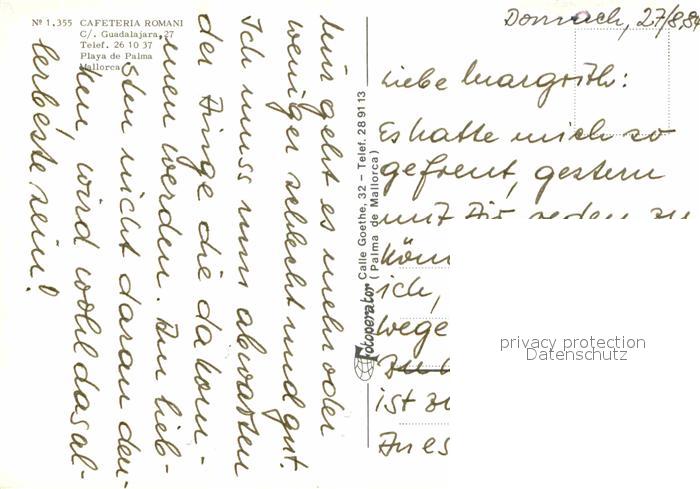 Nº 1.355 CAFETERIA ROMANI
C/. Guadalajara, 27
Telef. 26 10 37
Playa de Palma
Mallorca
Dornach, 27/8.84
Liebe Margrith:
Es hatte mich so
gefreut, gestern
mit Dir reden zu
könn
ich,
wege
ist zu
In es
privacy protection
Datenschutz
Fotoperator Calle Goethe, 32 – Telef. 28 91 13
(Palma de Mallorca)
mir geht es mehr oder
weniger schlecht und gut.
Ich muss nun abwarten
der Dinge die da kom-
men werden. Am lieb-
sten nicht daran den-
ken, wird wohl das al-
lerbeste sein!